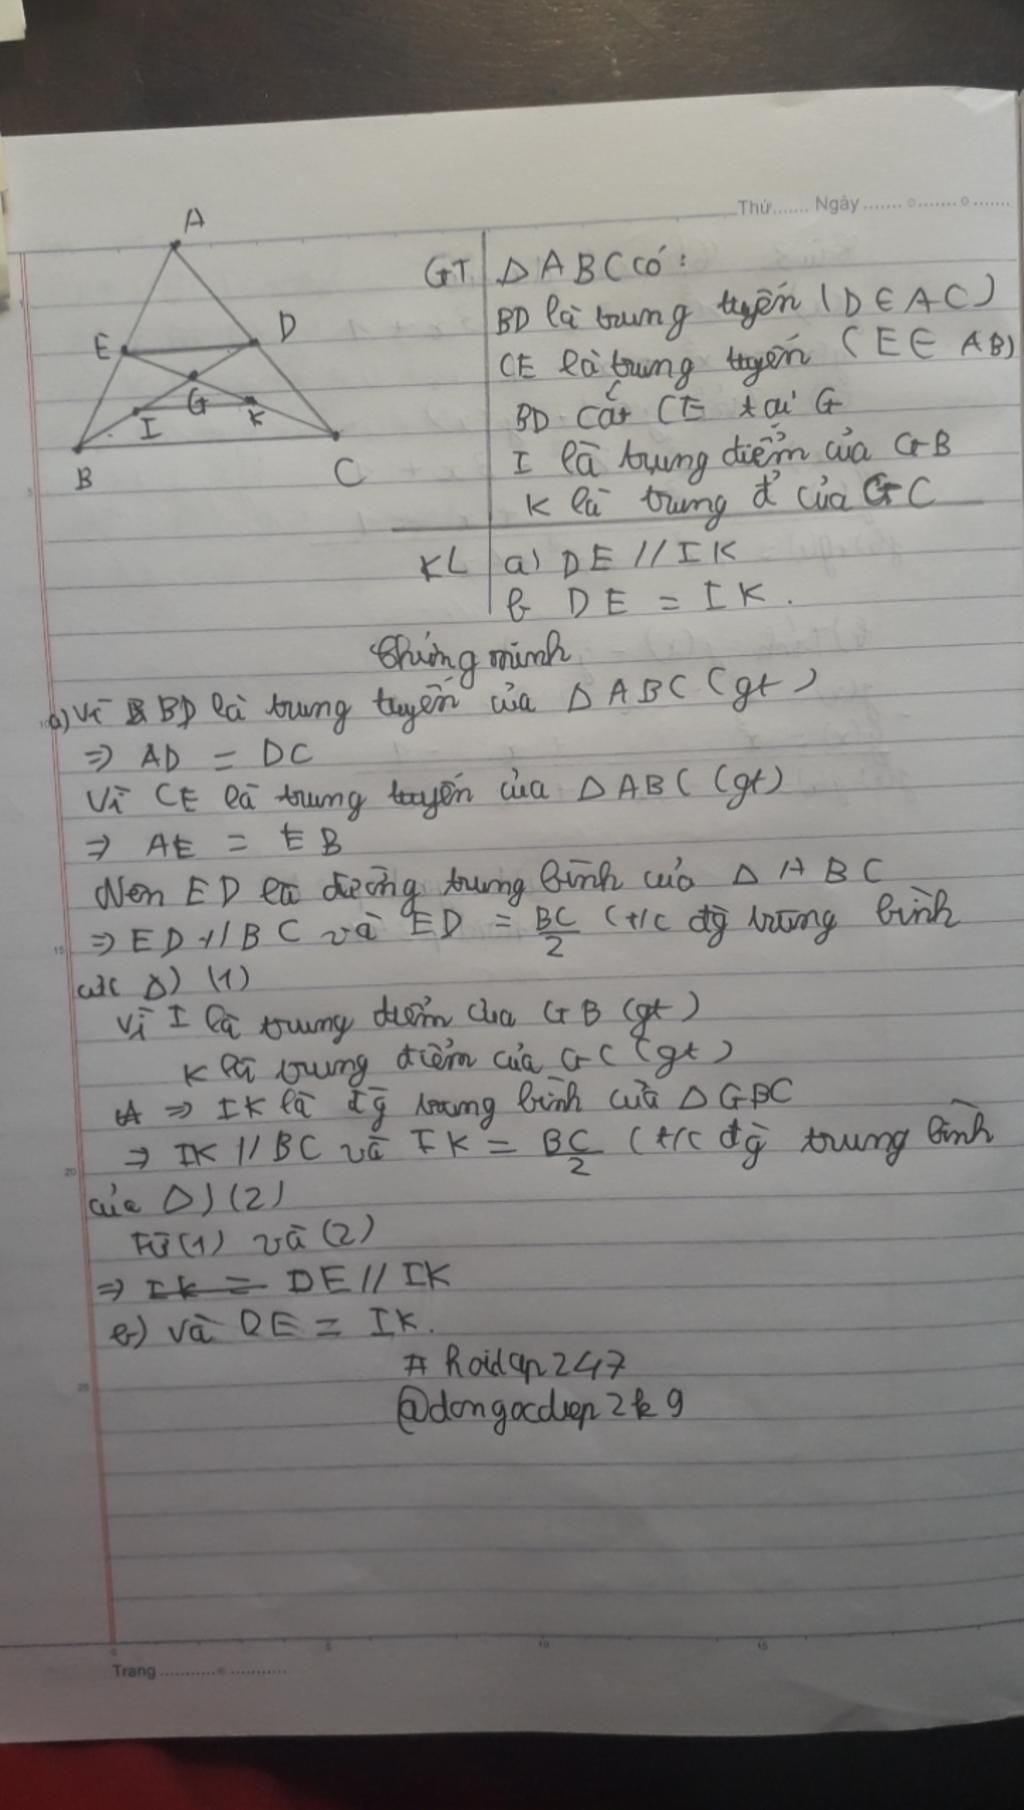 Thứ....... Ngày ....... o ....... o .......
A
E
D
G
I
K
B
C
GT ΔABC có:
BD là trung tuyến (D∈AC)
CE là trung tuyến (E∈ AB)
BD cắt CE tại G
I là trung điểm của GB
K là trung đ' của GC
KL a) DE // IK
b DE = IK.
Chứng minh
a) Vì BD là trung tuyến của ΔABC (gt)
=> AD = DC
Vì CE là trung tuyến của ΔABC (gt)
=> AE = EB
Nên ED là đường trung bình của ΔABC
=> ED // BC và ED = BC/2 (t/c đg trung bình
của Δ) (1)
Vì I là trung điểm của GB (gt)
K là trung điểm của GC (gt)
=> IK là đg trung bình của ΔGBC
=> IK // BC và IK = BC/2 (t/c đg trung bình
của Δ) (2)
Từ (1) và (2)
=> IK = DE // IK
b) và DE = IK.
# hoidap247
@dongocdiep2k9
15
20
25
0 5 10 15
Trang ........... o ...........